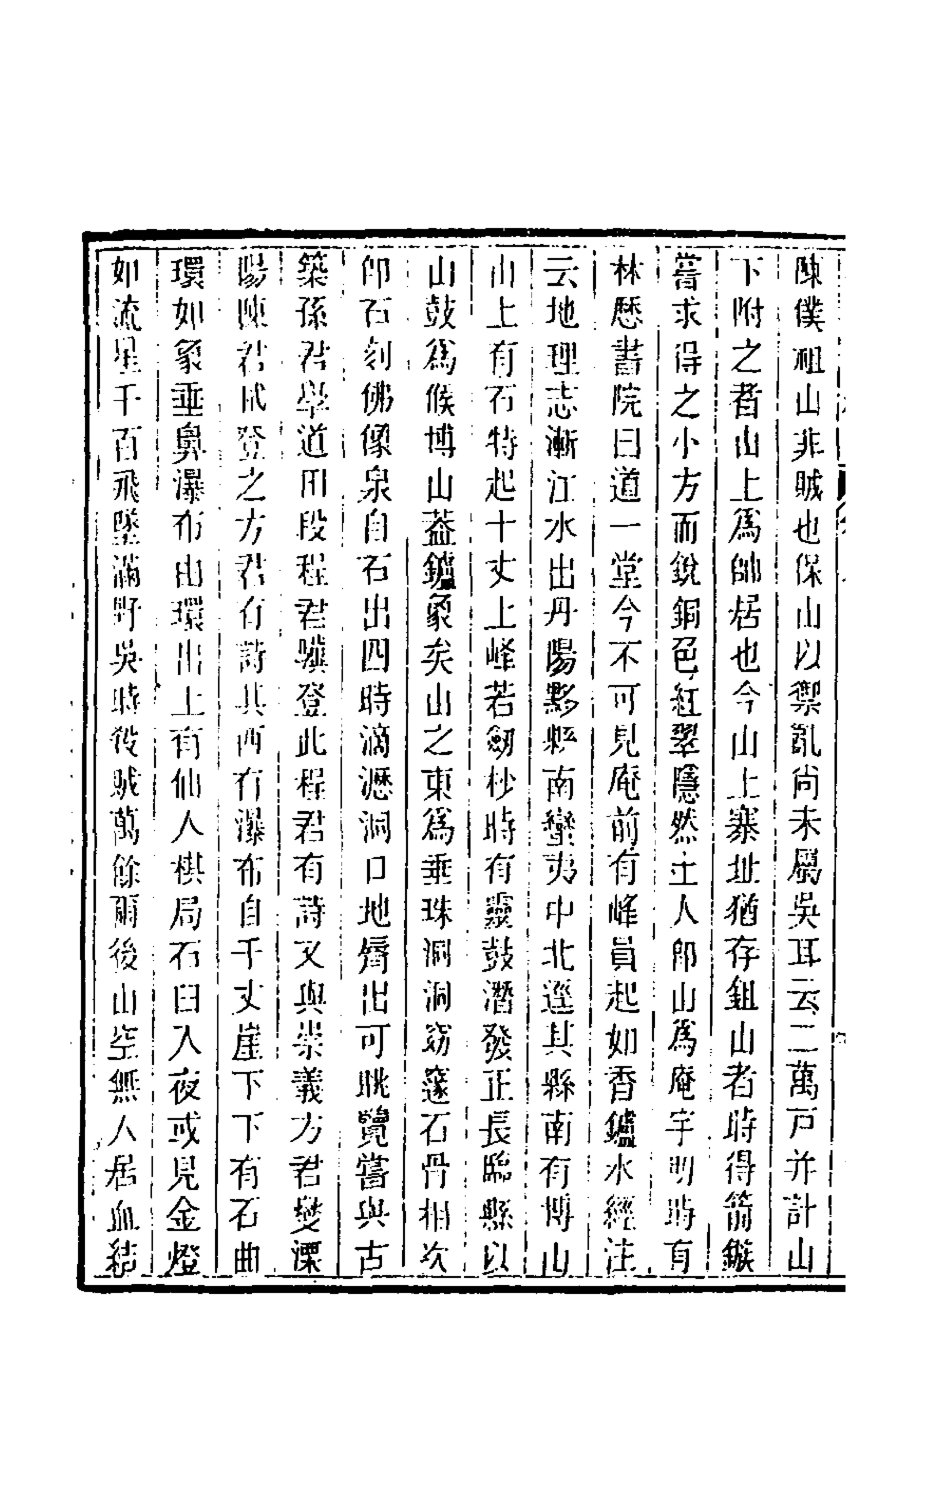 陳僕祖山非賊也保山以禦亂尚未屬吳耳云二萬戸并計山
下附之者山上爲帥居也今山上寨址猶存鉏山者時得箭鏃
嘗求得之小方而銳銅色紅翠隱然土人卽山爲庵宇明時有
林歷書院曰道一堂今不可見庵前有峰員起如香鑪水經注
云地理志漸江水出丹陽黟縣南蠻夷中北逕其縣南有博山
山上有石特起十丈上峰若劒杪時有靈鼓潛發正長臨縣以
山鼓爲候博山葢鑪象矣山之東爲垂珠洞洞窈窱石骨相次
卽石刻佛像泉自石出四時滴瀝洞口地膌出可眺覽嘗與古
築孫君學道田段程君驥登此程君有詩又與崇義方君爕溧
陽陳君斌登之方君有詩其西有瀑布自千丈崖下下有石曲
環如象垂鼻瀑布由環出上有仙人棋局石臼入夜或見金燈
如流星千百飛墜滿野吳時役賊萬餘爾後山空無人居血結